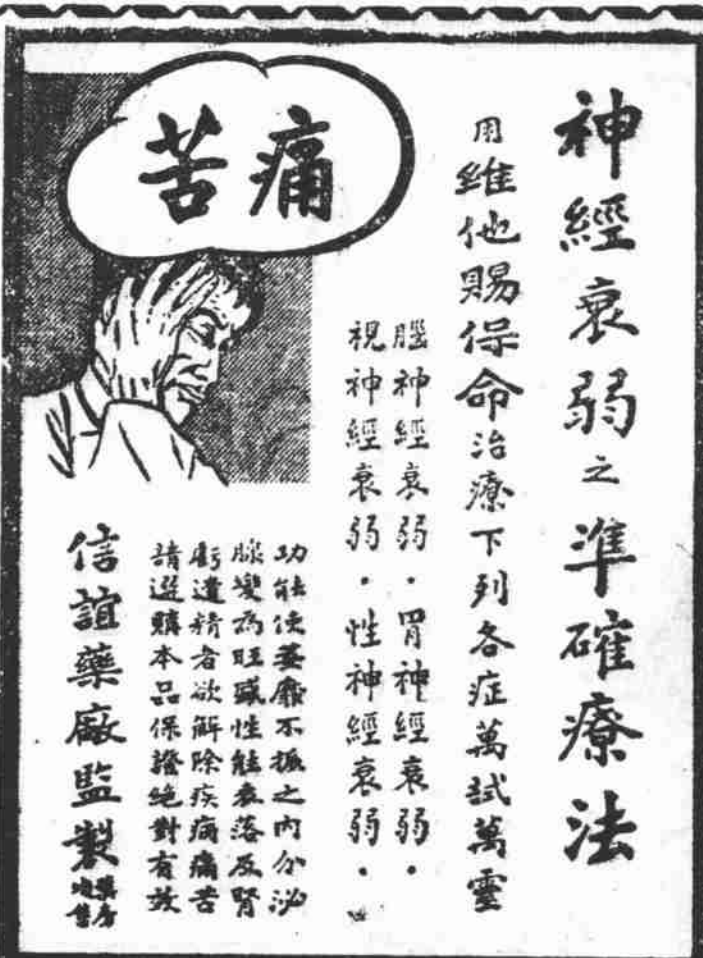 神經衰弱之準確療法
用維他賜保命治療下列各症萬試萬靈
腦神經衰弱・胃神經衰弱・
視神經衰弱・性神經衰弱・
痛苦
功能使萎靡不振之內分泌
腺變為旺盛性能衰落及腎
虧遺精者欲解除疾病痛苦
請選購本品保證絕對有效
信誼藥廠監製